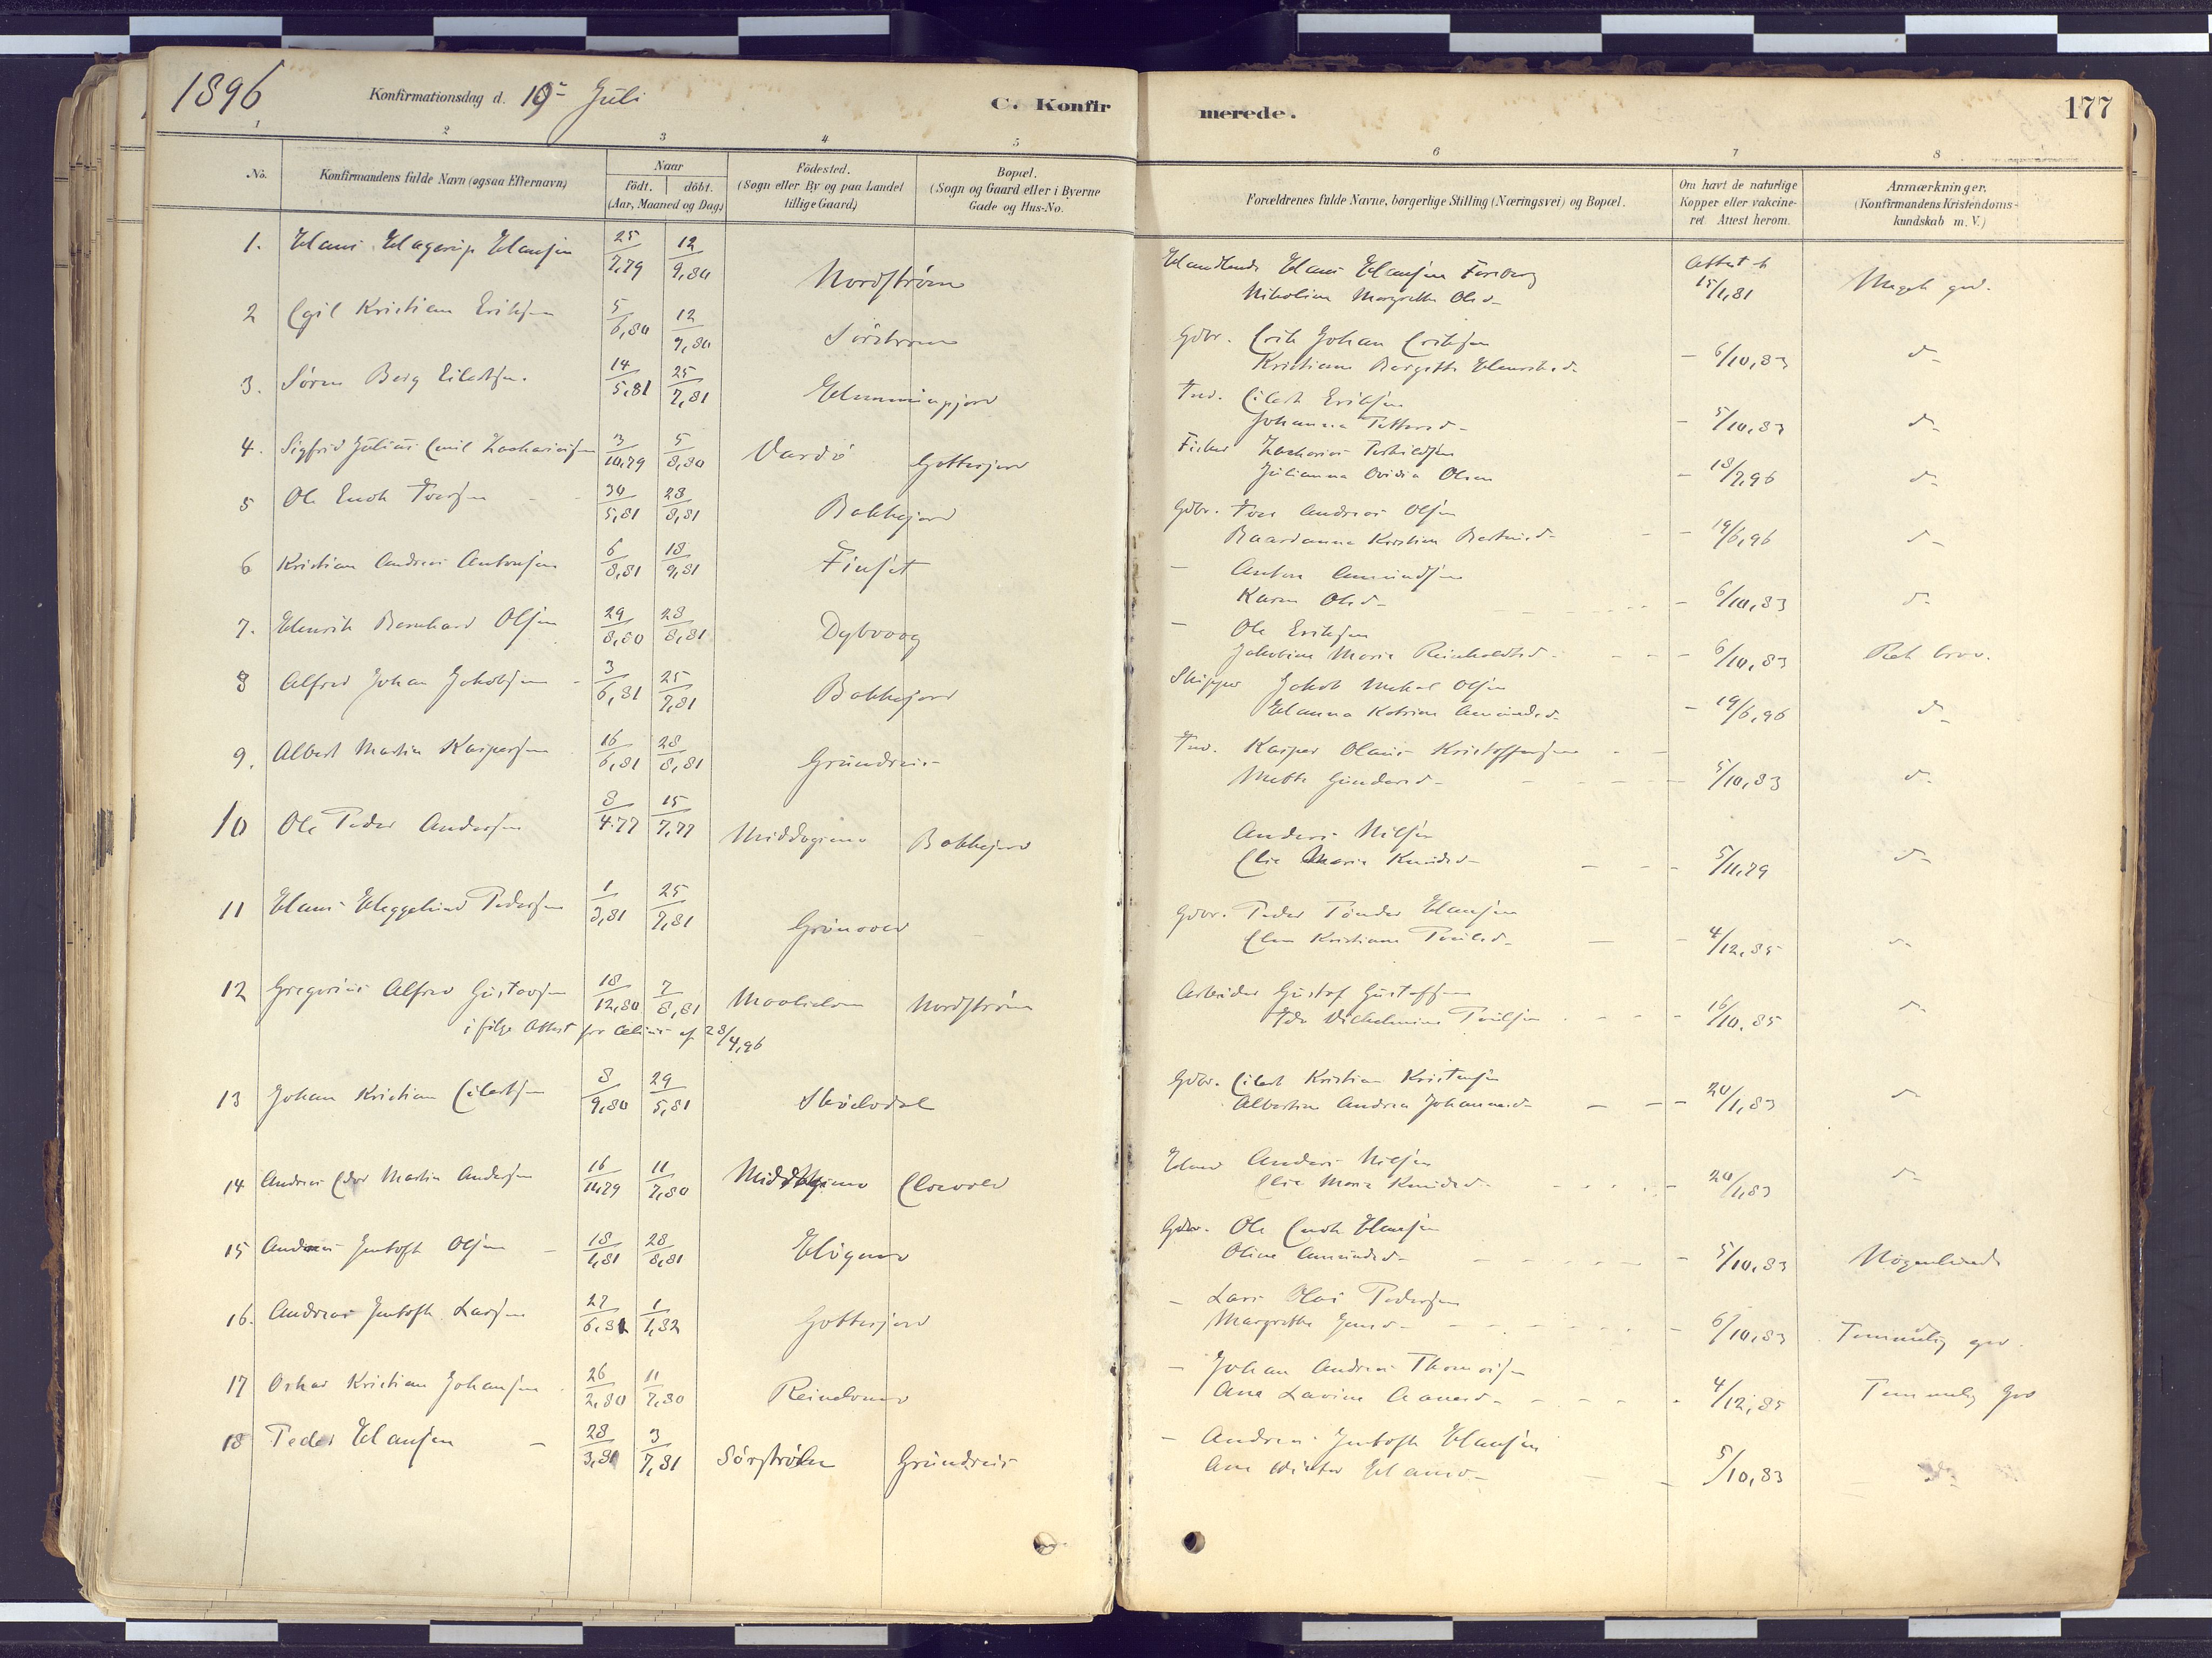 1896 Konfirmationsdag d. 19de Juli C. Konfirmerede. 177
1 2 3 4 5 6 7 8
No. Konfirmandens fulde Navn (ogsaa Efternavn) Naar født. døbt. (Aar, Maaned og Dag) Fødested. (Sogn eller By og paa Landet tillige Gaard) Bopæl. (Sogn og Gaard eller i Byerne Gade og Hus-No. Forældrenes fulde Navne, borgerlige Stilling (Næringsvei) og Bopæl. Om havt de naturlige Kopper eller vakcineret. Attest herom. Anmærkninger. (Konfirmandens Kristendomskundskab m. V.)
1. Hans Hagerup Hansen 25/7,79 12/9,80 Nordstrøm Hans Hansen Attest 15/1,81 Meget god.
Nikolina Margrethe Olsd.
2 Egil Kristian Eriksen 5/6,80 12/9,80 Sørstrøm Gdbr. Erik Johan Eriksen - 6/10,83 d-
Kristiane Bergitte Henriksd.
3. Søren Berg Eilertsen. 14/5,81 25/7,81 Ind. Eilert Eriksen - 5/10,83 d-
Johanna Pettersd-
4. Sigfrid Julius Emil Zachariasen 3/10,79 5/8,80 Vardö Gottesjord Fisker Zacharias - 18/7,96 d-
Julianna Ovidia Olsen
5 Ole Enok Iversen 30/5,81 28/8,81 Bakkejord Gdbr. Iver Andreas Olsen
Baardanna Kristine - 19/6,96 d-
6 Kristian Andreas Antonsen 6/8,81 18/9,81 Finsæt - Anton Amundsen
Karen Olsd- - 6/10,83 d-
7. Henrik Bernhard Olsen 29/8,80 28/8,81 Dybvaag - Ole Eriksen
Jakobine Marie Reinholdtsd. - 6/10,83 Ret brav.
8 Alfred Johan Jakobsen 3/6,81 25/7,81 Bakkejord Skipper Jakob Mikal Olsen
Hanna Katrine Amundsd. - 19/6,96 d-
9. Albert Martin Kaspersen 16/6,81 28/8,81 Grundreis Ind. Kasper Olaus Kristoffersen
Mette Gundersd- - 5/10,83 d-
10 Ole Peder Andersen 8/4.77 15/7,77 Bakkejord Anders Nilsen
Elie Marie Knudsd- - 5/11,79 d-
11 Hans Heggelund Pedersen 1/3,81 25/7,81 Grønvold Gdbr. Peder Tønder Hansen
Elen Kristiane Paulsd- - 4/12,85 d-
12 Gregorius Alfred Gustavsen 18/12,80 7/8,81 Maalselven Nordstrøm Arbeider Gustaf Gustafsen
i følge Attest 28/4,96 Ida Vilhelmine Paulsen - 16/10,85 d-
13 Johan Kristian Eilertsen 8/9,80 29/5,81 Skøelvdal Gdbr. Eilert Kristian Kristensen
Albertine Andrea Johannesd- - 20/1,83 d-
14 Andreas Edor Martin Andersen 16/11,79 11/7,80 Anders Nilsen
Elie Marie Knudsd- - 20/1,83 d-
15 Andreas Jentoft Olsen 18/1,81 28/8,81 Gdbr. Ole Enok Hansen
Oline Amundsd- - 5/10,83 Nogenlunde
16. Andreas Jentoft Larsen 27/6,81 1/1,82 Gottesjord - Lars Olai Pedersen
Margrethe Jensd- - 6/10,83 Temmelig god.
17 Oskar Kristian Johansen 26/2,80 11/7,80 - Johan Andreas Thomasen
Ane Lavine - 4/12,85 Temmelig god
18 Peder Hansen 28/3,81 3/7,81 Sørstrøm Grundreis - Andreas Jentoft Hansen
Ane - 5/10,83 d-